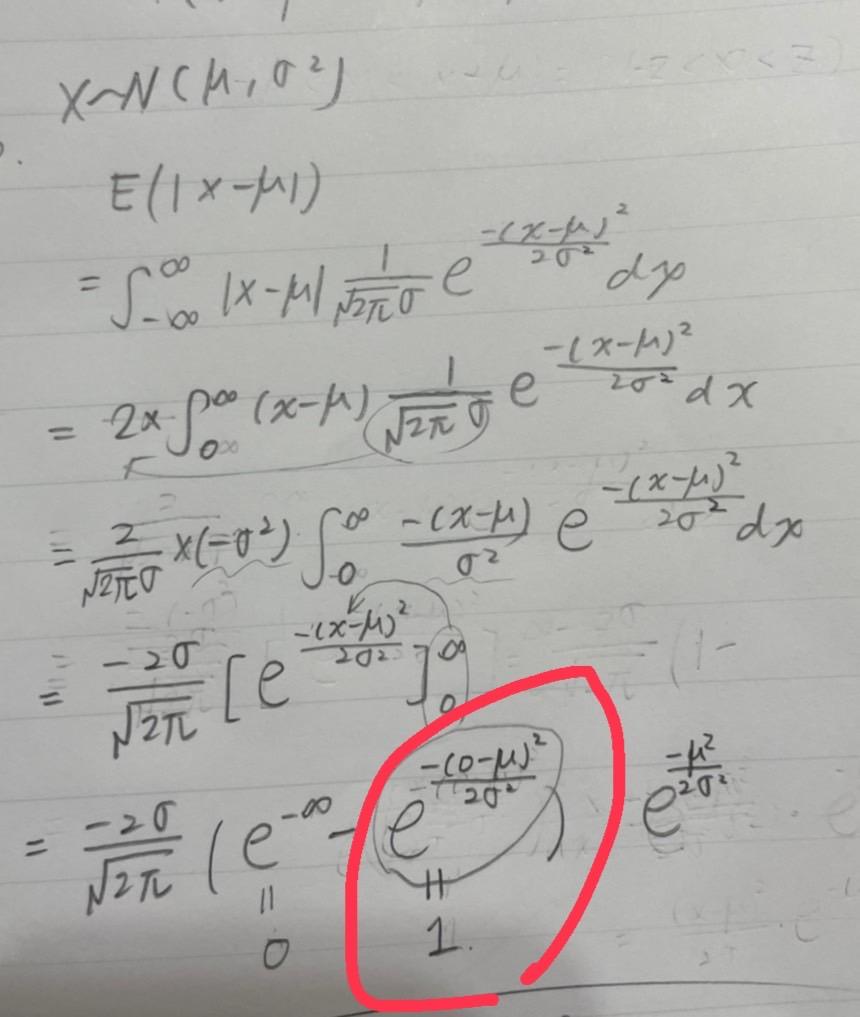 X~N(μ, σ²)
E(|x-μ|)
= ∫_{-∞}^{∞} |x-μ| \frac{1}{\sqrt{2π}σ} e^{\frac{-(x-μ)^2}{2σ^2}} dx
= 2× ∫_{0}^{∞} (x-μ) \frac{1}{\sqrt{2π}σ} e^{\frac{-(x-μ)^2}{2σ^2}} dx
= \frac{2}{\sqrt{2π}σ} ×(-σ²) ∫_{0}^{∞} \frac{-(x-μ)}{σ^2} e^{\frac{-(x-μ)^2}{2σ^2}} dx
= \frac{-2σ}{\sqrt{2π}} [e^{\frac{-(x-μ)^2}{2σ^2}}]_{0}^{∞}
= \frac{-2σ}{\sqrt{2π}} (e^{-∞} - e^{\frac{-(0-μ)^2}{2σ^2}}) e^{\frac{-μ^2}{2σ^2}}
= =
0 1.